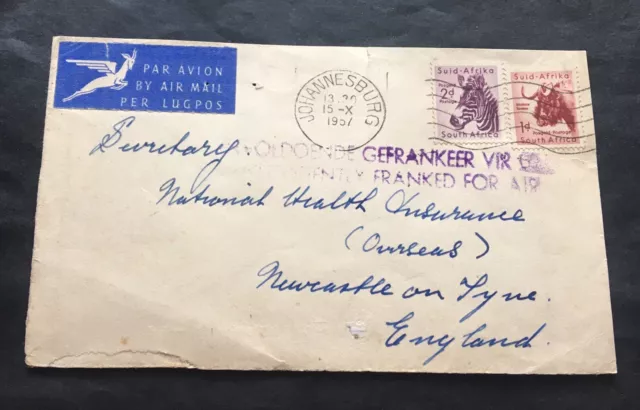 PAR AVION
BY AIR MAIL
PER LUGPOS
JOHANNESBURG
13.30
15-X
1957
Suid-Afrika
2d
Posgeld
Postage
South Africa
Suid-Afrika
1d
Posgeld Postage
South Africa
OLDOENDE GEFRANKEER VIR
ENTLY FRANKED FOR AIR
Secretary
National Health Insurance
(Overseas)
Newcastle on Tyne.
England.